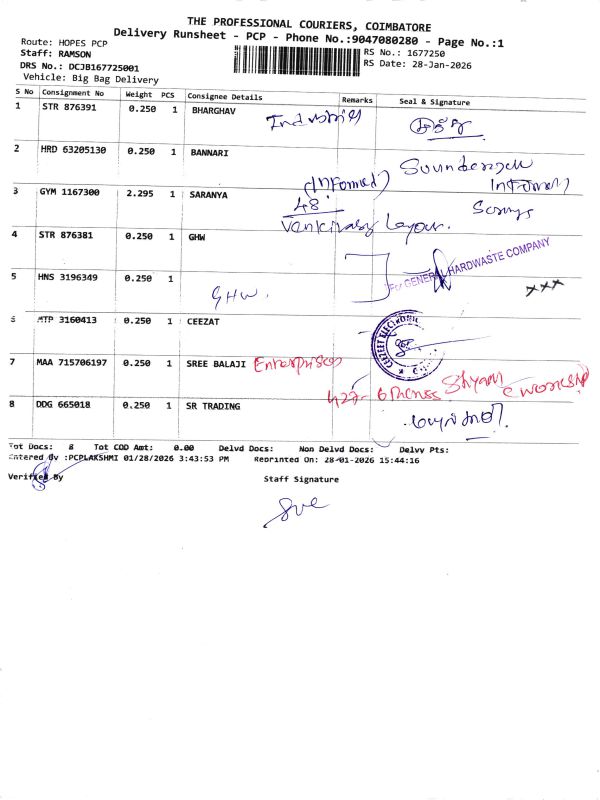 THE PROFESSIONAL COURIERS, COIMBATORE
Delivery Runsheet - PCP - Phone No.:9047080280 - Page No.:1
Route: HOPES PCP
Staff: RAMSON
DRS No.: DCJB167725001
Vehicle: Big Bag Delivery
RS No.: 1677250
RS Date: 28-Jan-2026
S No Consignment No Weight PCS Consignee Details Remarks Seal & Signature
1 STR 876391 0.250 1 BHARGHAV
2 HRD 63205130 0.250 1 BANNARI
(Informed)
3 GYM 1167300 2.295 1 SARANYA
48
4 STR 876381 0.250 1 GHW
For GENERAL HARDWASTE COMPANY
5 HNS 3196349 0.250 1
GHW.
xxx
6 MTP 3160413 0.250 1 CEEZAT
7 MAA 715706197 0.250 1 SREE BALAJI Enterprises
8 DDG 665018 0.250 1 SR TRADING
Tot Docs: 8 Tot COD Amt: 0.00 Delvd Docs: Non Delvd Docs: Delvy Pts:
Entered By :PCPLAKSHMI 01/28/2026 3:43:53 PM Reprinted On: 28-01-2026 15:44:16
Verified By Staff Signature